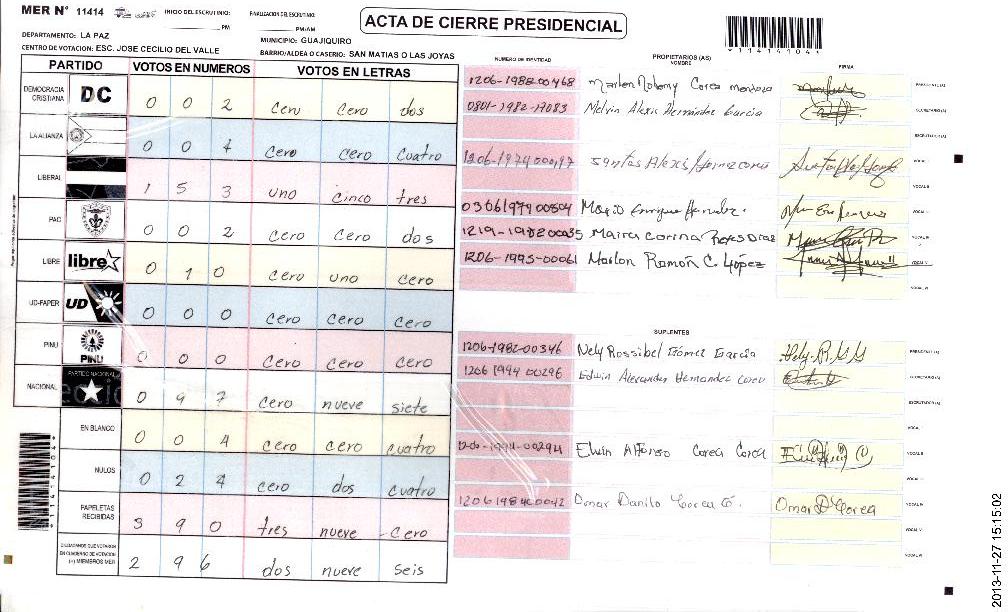 MER N° 11414
INICIO DEL ESCRUTINIO:
PM
FINALIZACION DEL ESCRUTINIO:
PM/AM
ACTA DE CIERRE PRESIDENCIAL
DEPARTAMENTO: LA PAZ
MUNICIPIO: GUAJIQUIRO
CENTRO DE VOTACION: ESC. JOSE CECILIO DEL VALLE
BARRIO/ALDEA O CASERIO: SAN MATIAS O LAS JOYAS
PARTIDO VOTOS EN NUMEROS VOTOS EN LETRAS
DEMOCRACIA CRISTIANA DC 0 0 2 cero cero dos
LA ALIANZA 0 0 4 cero cero cuatro
LIBERAL 1 5 3 uno cinco tres
PAC 0 0 2 cero cero dos
LIBRE libre 0 1 0 cero uno cero
UD-FAPER UD 0 0 0 cero cero cero
PINU PINU 0 0 0 cero cero cero
NACIONAL PARTIDO NACIONAL 0 9 7 cero nueve siete
EN BLANCO 0 0 4 cero cero cuatro
NULOS 0 2 4 cero dos cuatro
PAPELETAS RECIBIDAS 3 9 0 tres nueve cero
CIUDADANOS QUE VOTARON EN CUADERNO DE VOTACION (+) MIEMBROS MER 2 9 6 dos nueve seis
NUMERO DE IDENTIDAD PROPIETARIOS (AS) NOMBRE FIRMA
1206-1988-00468 Marlen Corea Mendoza PRESIDENTE(A)
0801-1982-17083 Melvin Alexis Hernández García SECRETARIO(A)
ESCRUTADOR(A)
Santos Alexis VOCAL I
VOCAL II
Mario Enrique
Maira Corina Reyes Diaz
1206-1995-00061 Marlon Ramón C. López
SUPLENTES
1206-1982-00346 Nely Rossibel Gómez García PRESIDENTE(A)
1206 1994 00296 Edwin Alexander Hernandez Corea SECRETARIO(A)
ESCRUTADOR(A)
VOCAL I
1206-1994-00294 Elvin Alfonso Corea Corea VOCAL II
Omar Danilo Corea G. Omar D Corea
2013-11-27 15:15:02